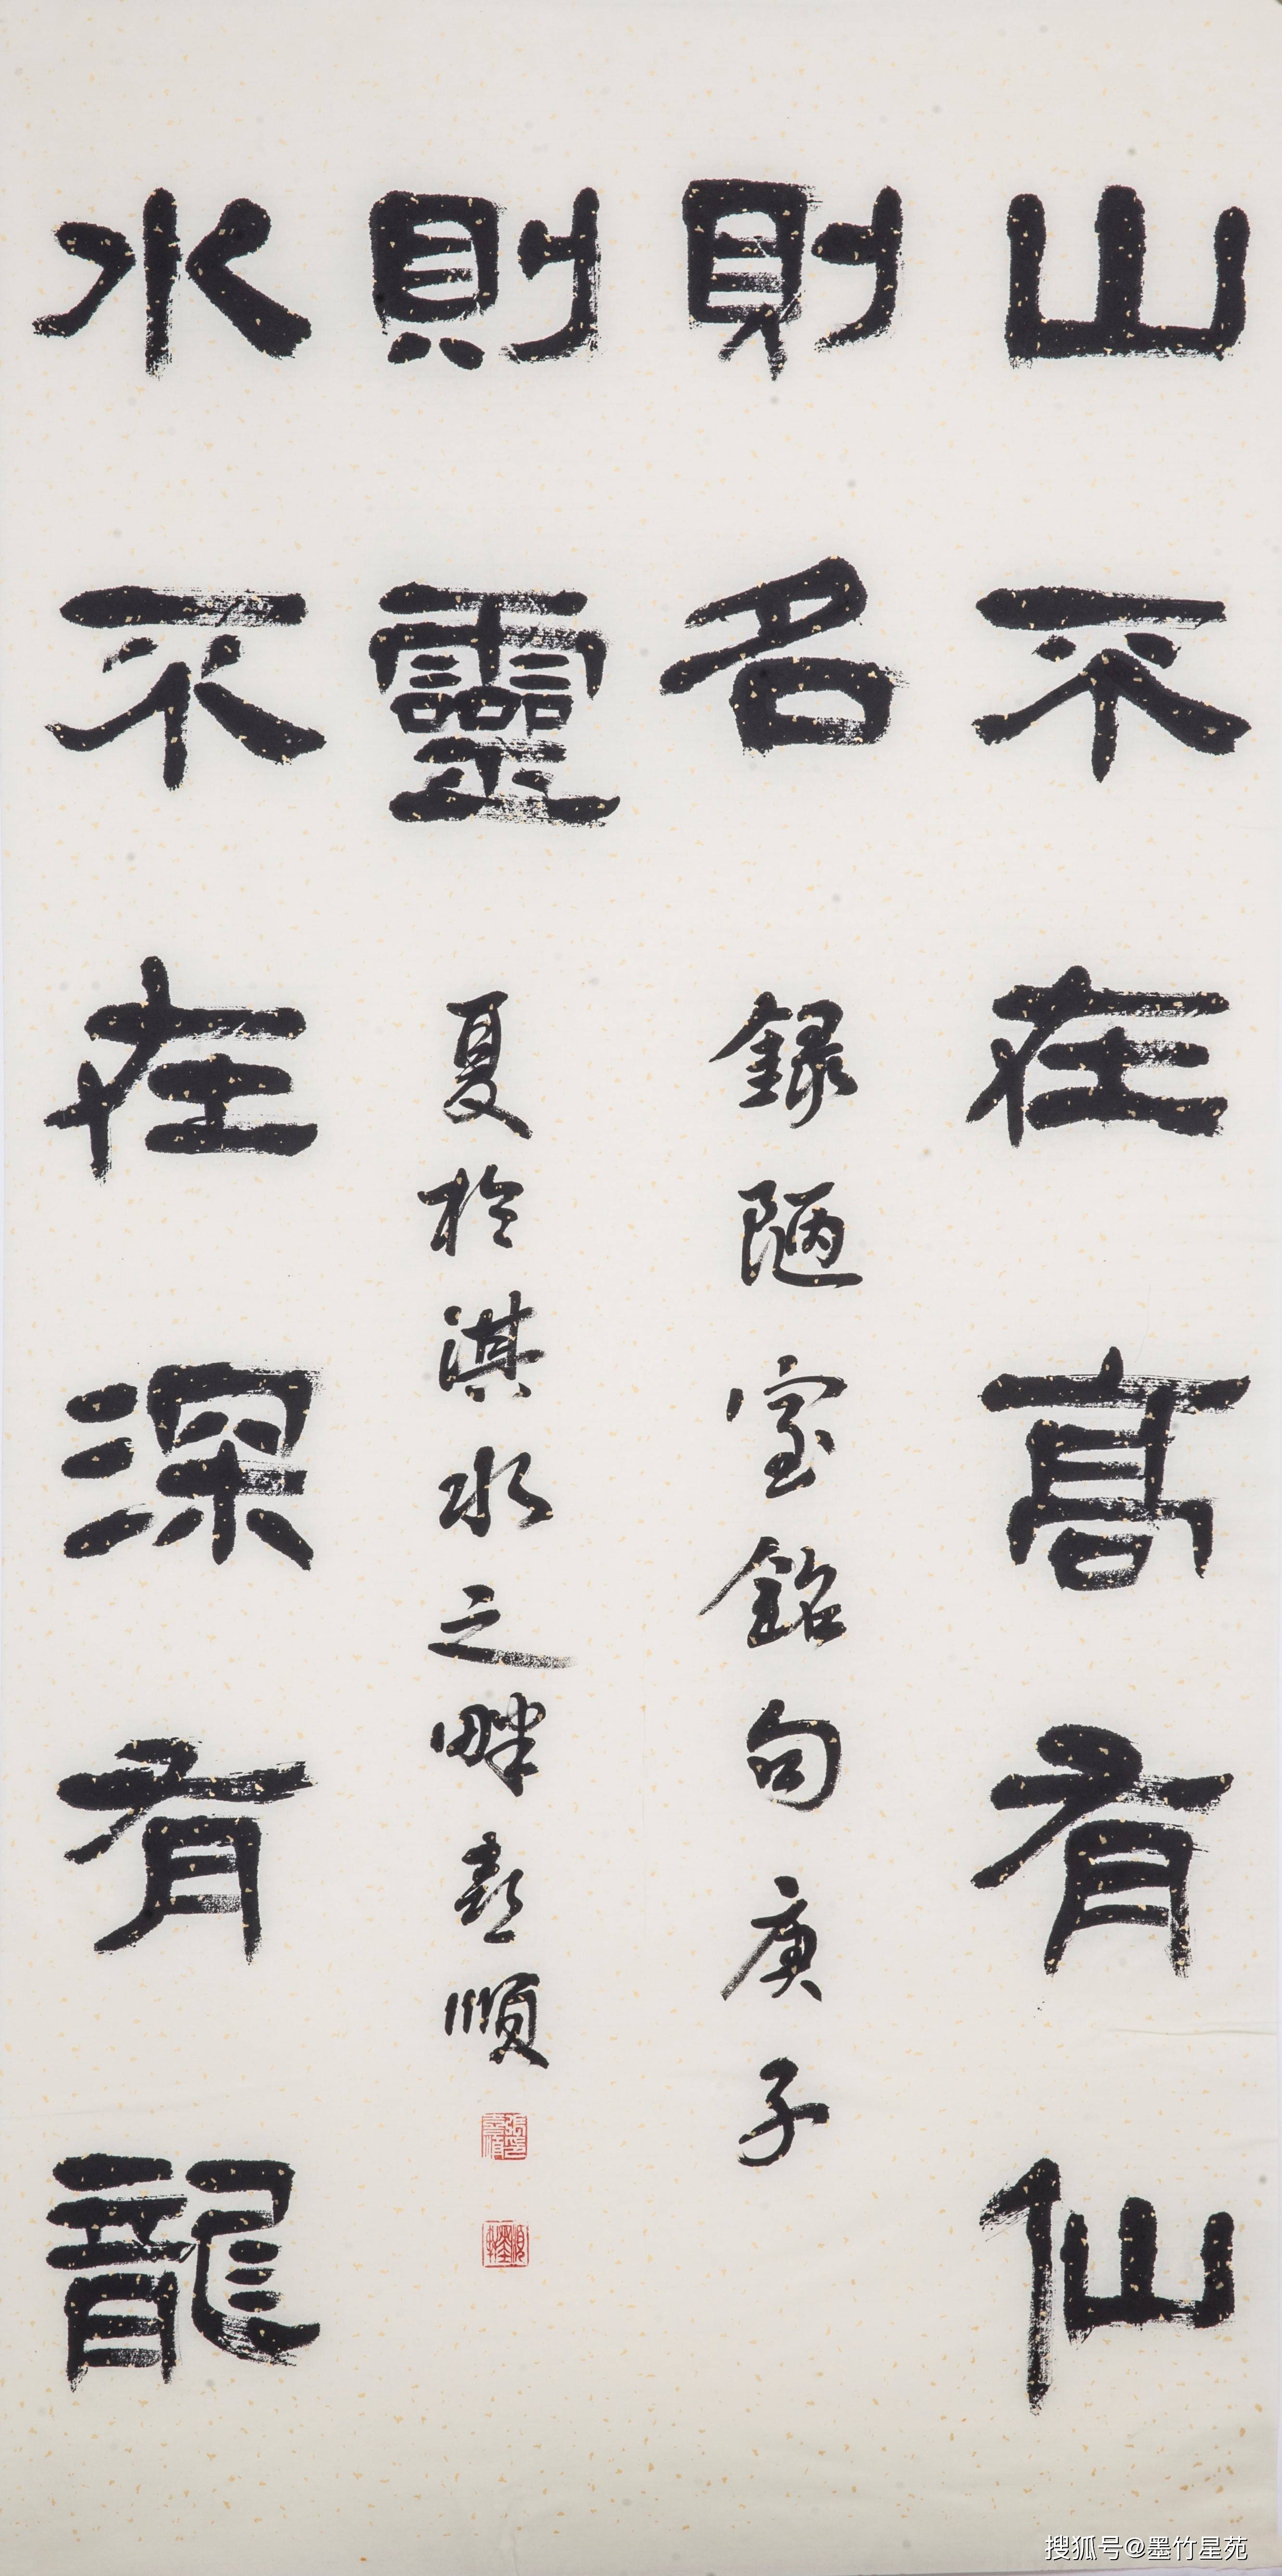 山不在高有仙
則名
水不在深有龍
則靈
録陋室銘句庚子
夏於淇水之畔喜順
搜狐号@墨竹星苑